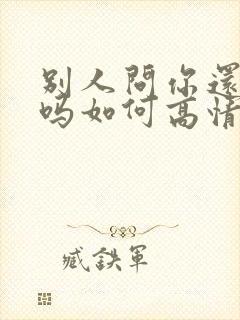 别人問你還
吗如何高情
臧鉄軍